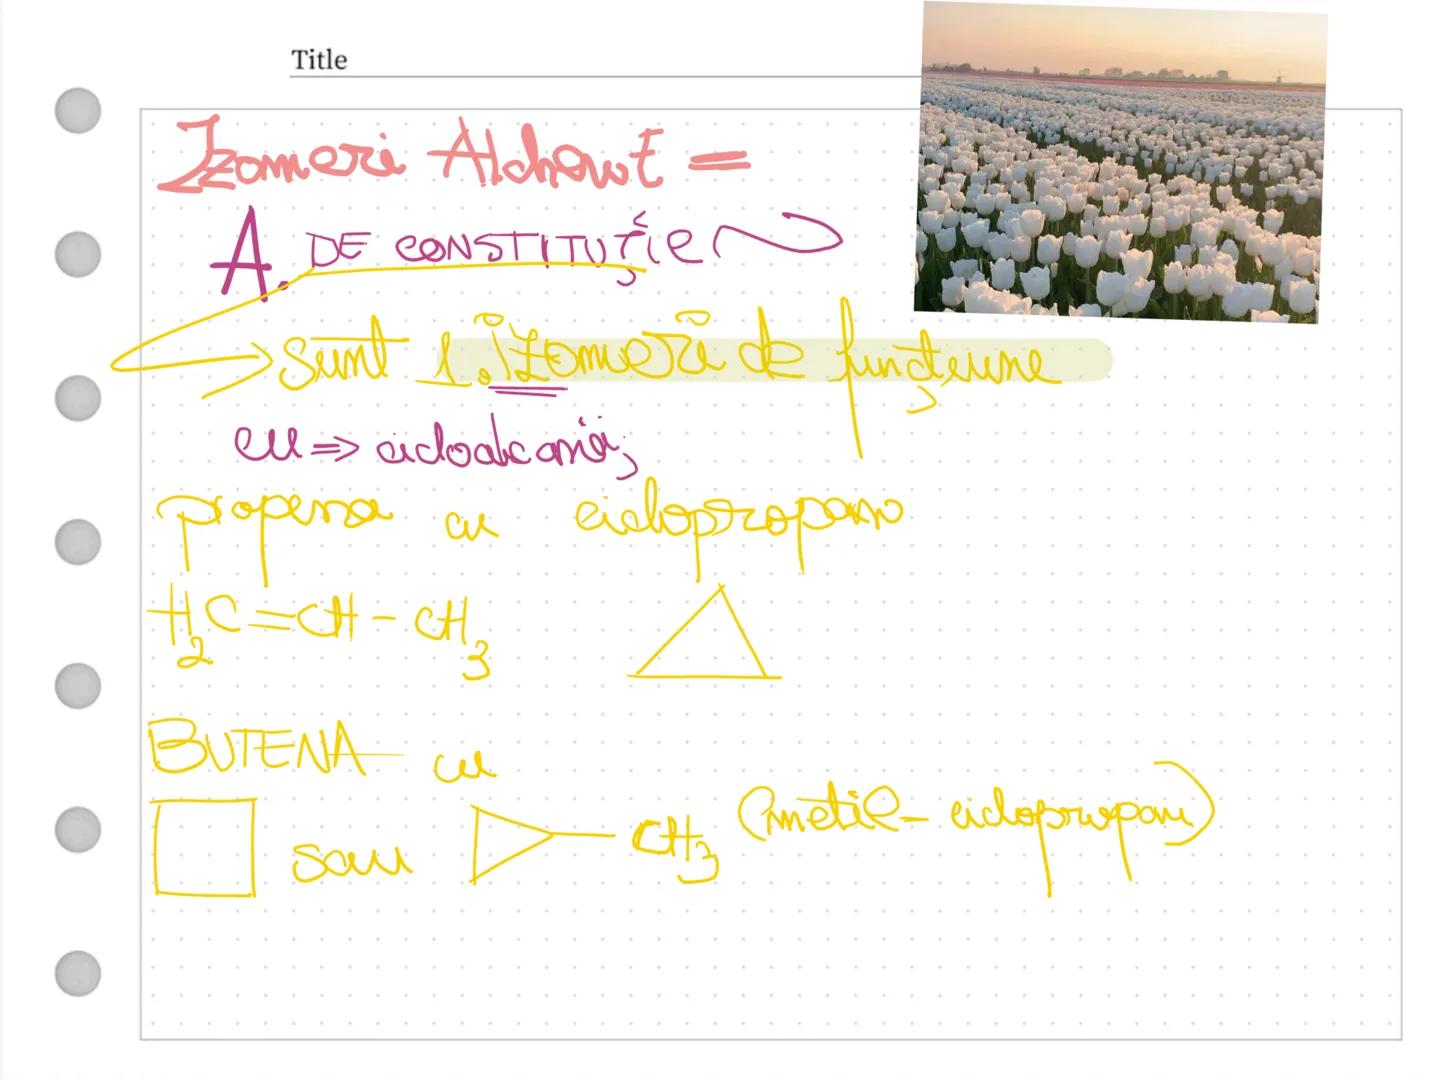 Title
Izomeri Alchene =
A. DE CONSTITUȚIE
sunt 1. izomeri de funcțiune
cu => cicloalcanii;
propena cu ciclopropan
H2C=CH-CH3
BUTENA cu
sau CH3 (metil-ciclopropan)